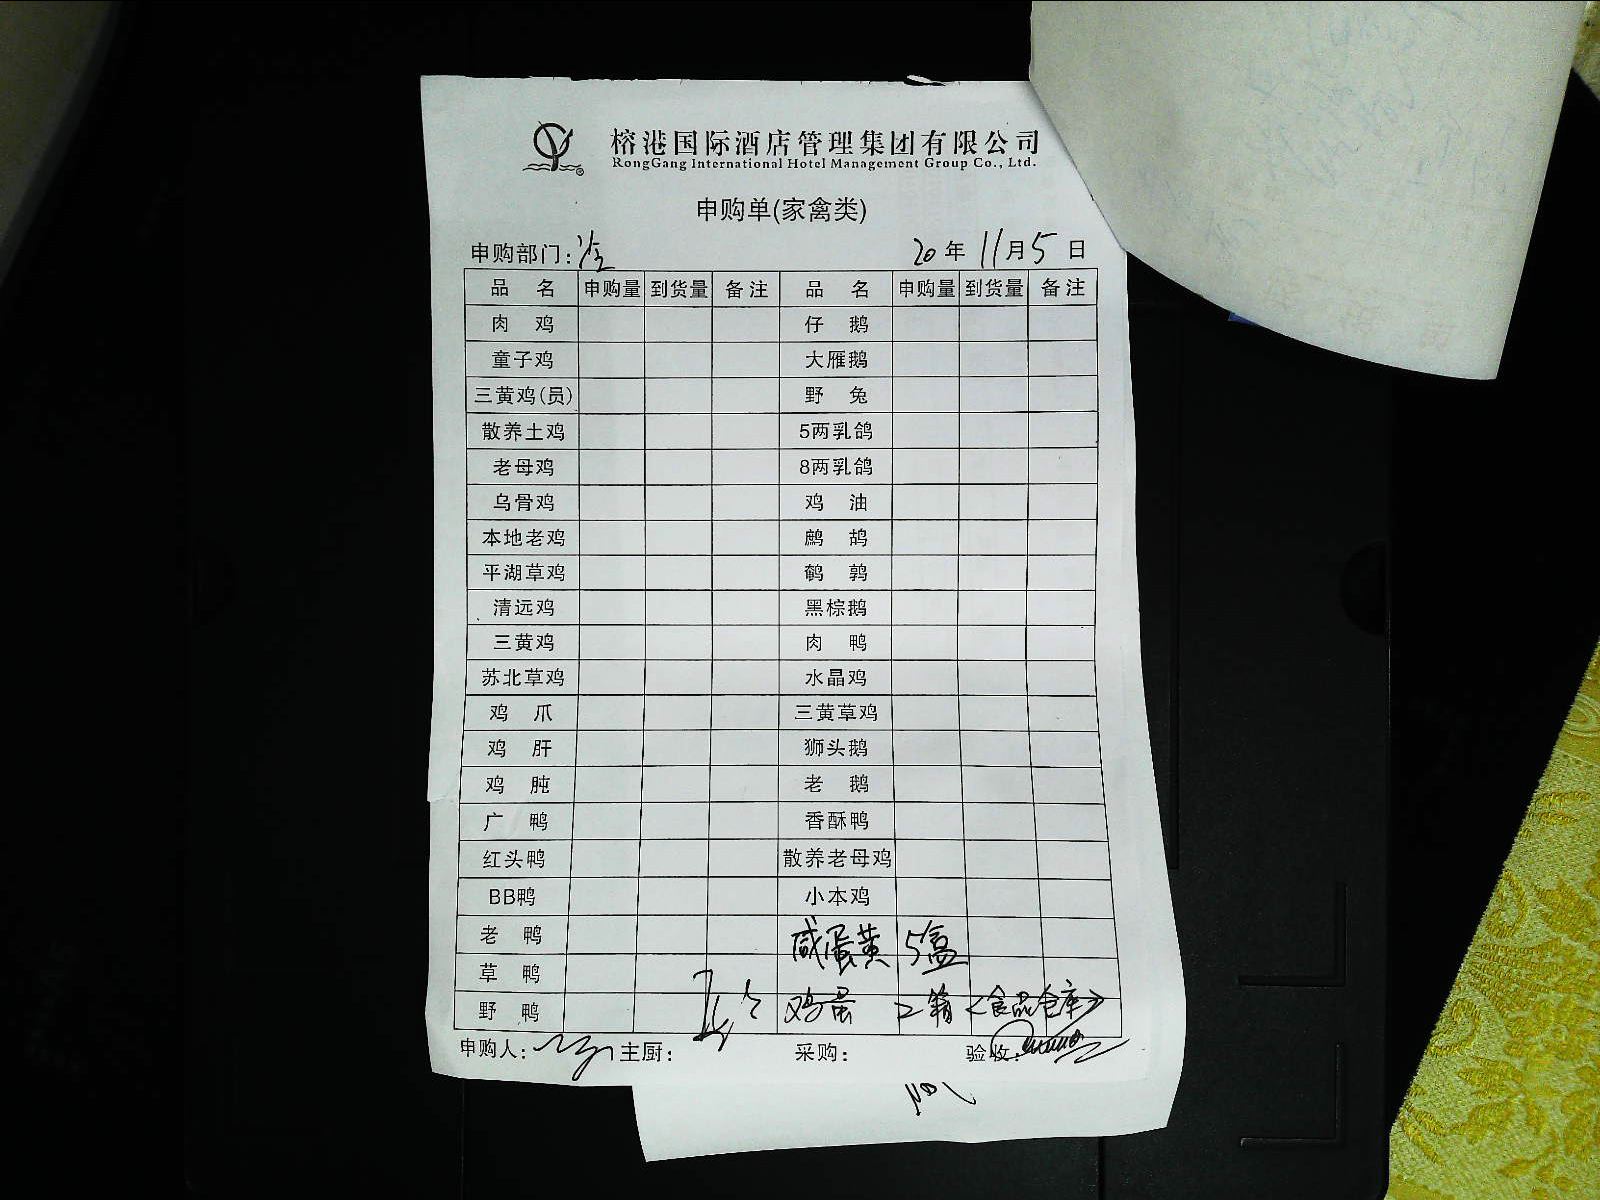 榕港国际酒店管理集团有限公司
RongGang International Hotel Management Group Co., Ltd.
申购单(家禽类)
申购部门: 20年11月5日
品名 申购量 到货量 备注 品名 申购量 到货量 备注
肉鸡 仔鹅
童子鸡 大雁鹅
三黄鸡(员) 野兔
散养土鸡 5两乳鸽
老母鸡 8两乳鸽
乌骨鸡 鸡油
本地老鸡 鹧鸪
平湖草鸡 鹌鹑
清远鸡 黑棕鹅
三黄鸡 肉鸭
苏北草鸡 水晶鸡
鸡爪 三黄草鸡
鸡肝 狮头鹅
鸡肫 老鹅
广鸭 香酥鸭
红头鸭 散养老母鸡
BB鸭 小本鸡
老鸭 咸蛋黄 5盒
草鸭
野鸭 鸡蛋 2箱<食品仓库>
申购人: 主厨: 采购: 验收: